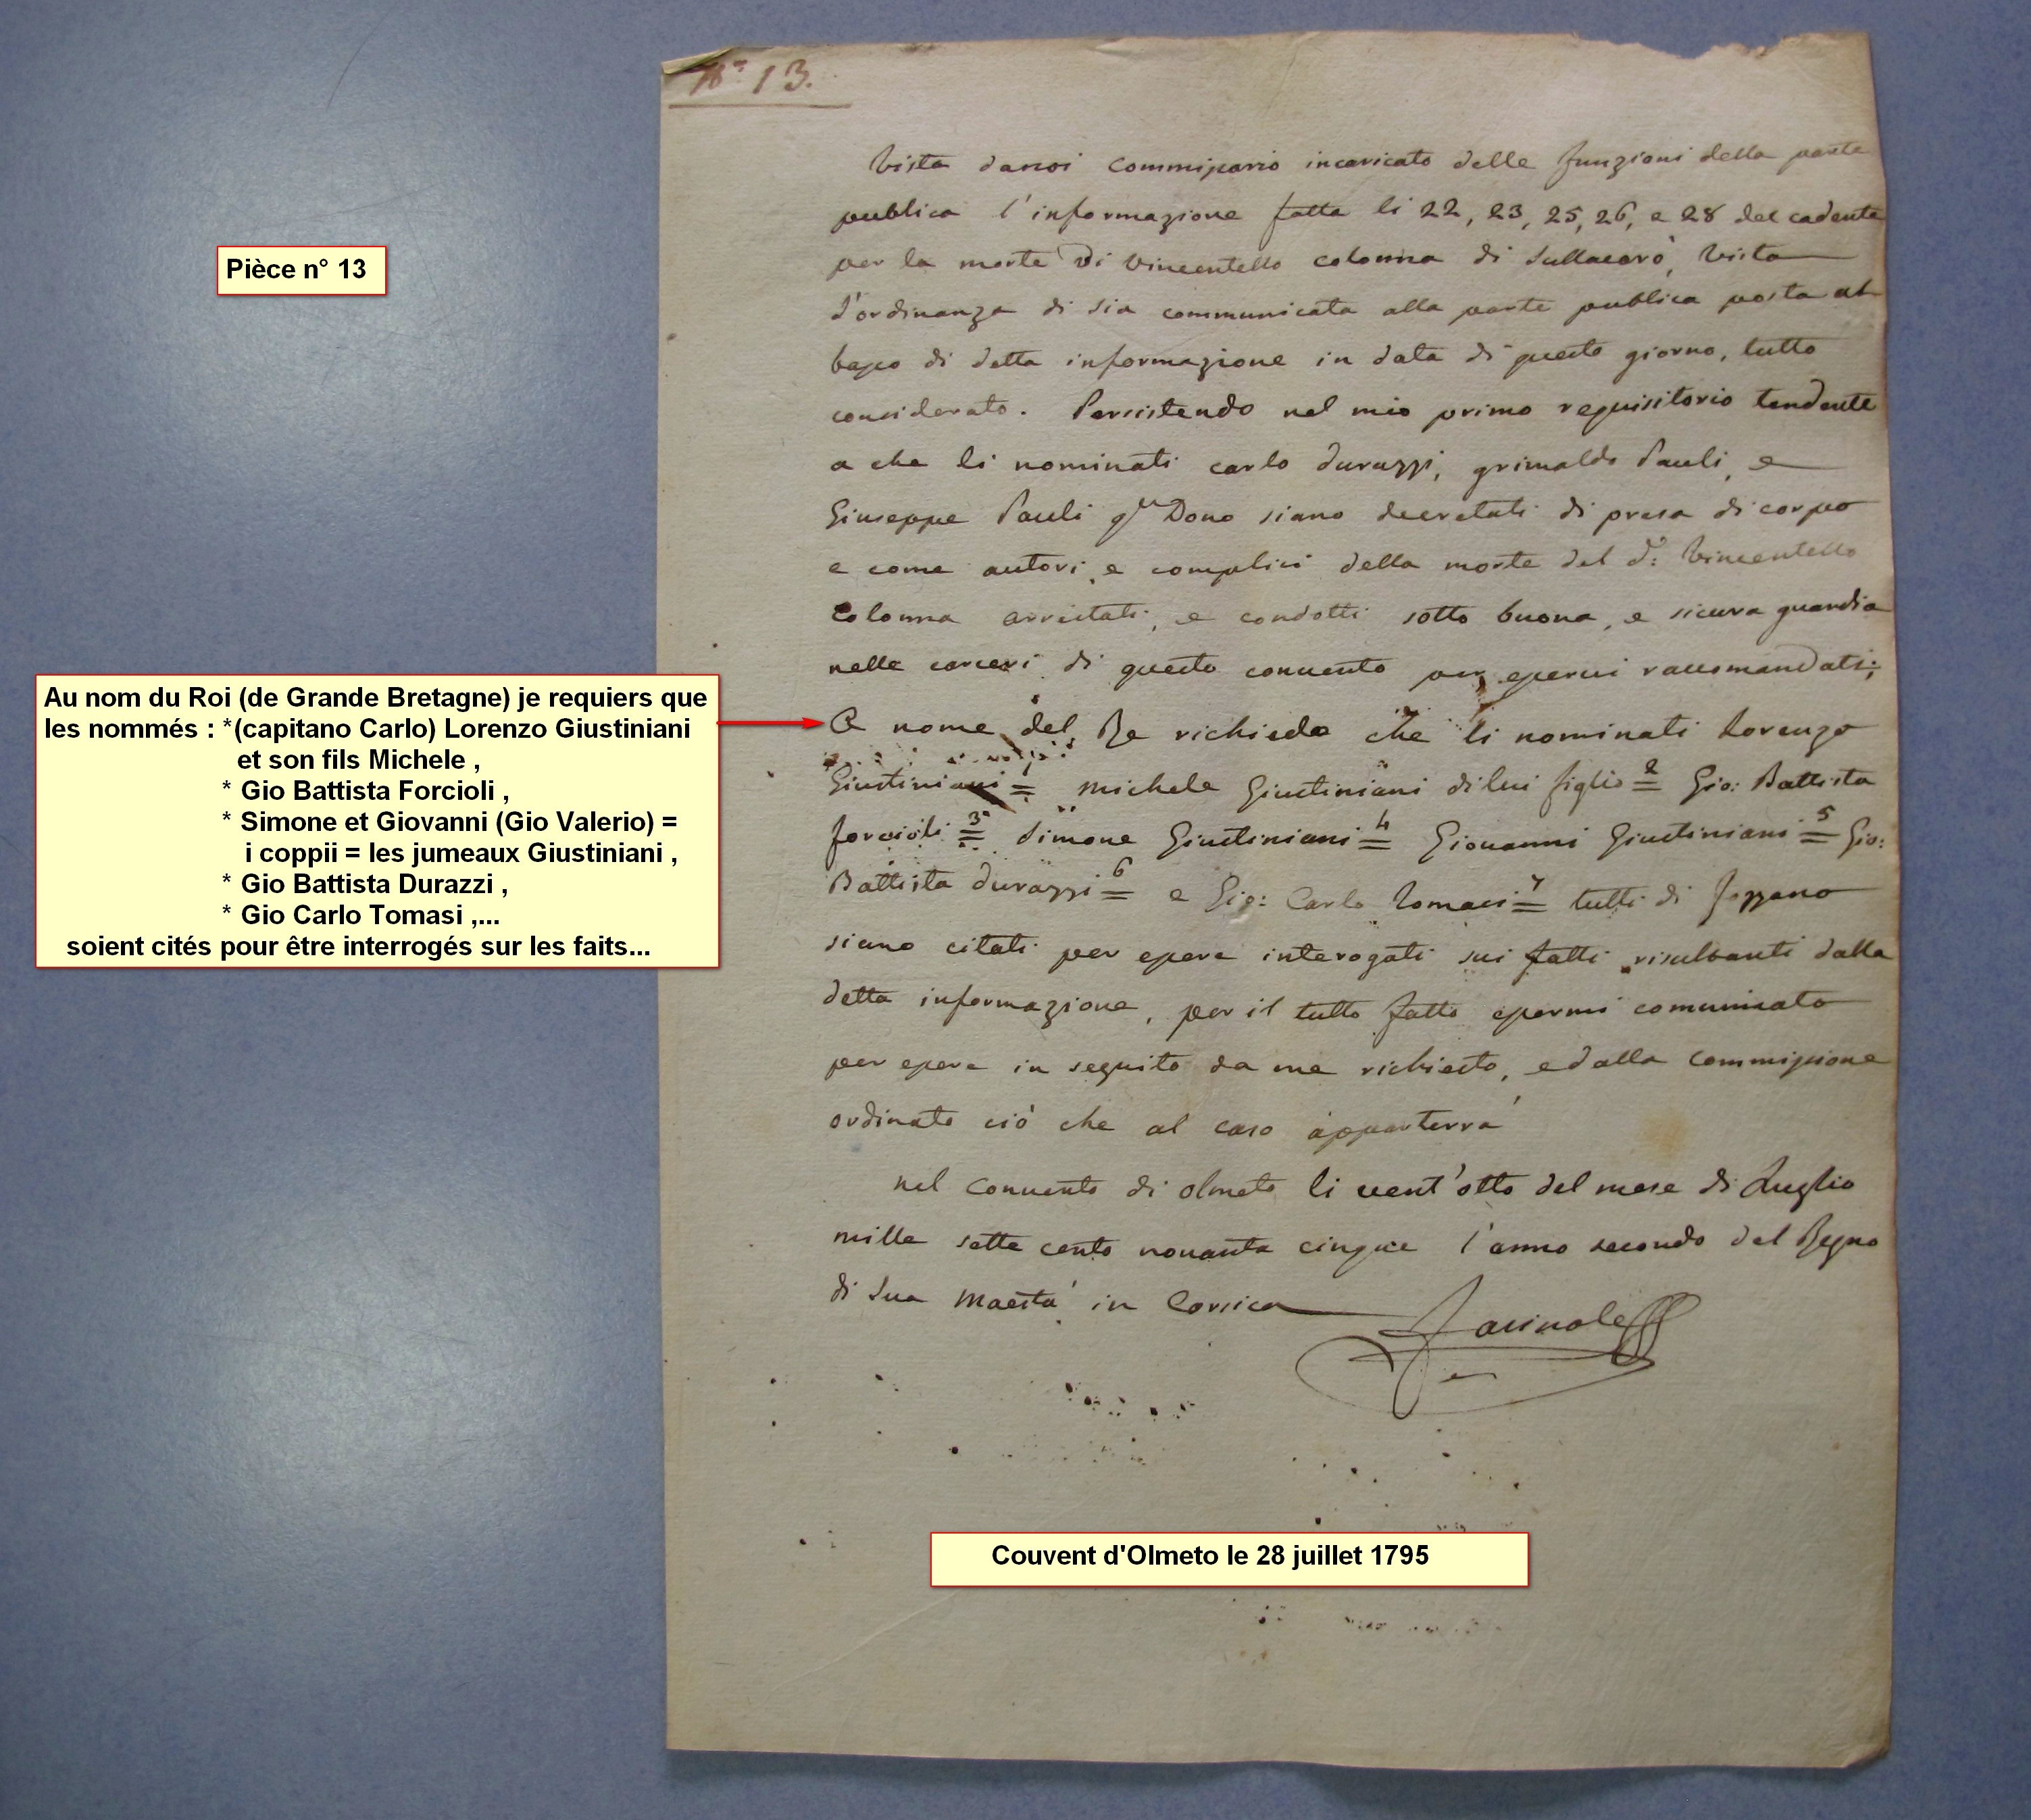 N.º 13.
Pièce n° 13
Vista da noi Commissario incaricato delle funzioni della parte
publica l'informazione fatta li 22, 23, 25, 26, e 28 del cadente
per la morte di Vincentello colonna di Sullacarò, Vista
l'ordinanza di sia communicata alla parte publica posta al
basso di detta informazione in data di questo giorno, tutto
considerato. Persistendo nel mio primo requisitorio tendente
a che li nominati carlo durazzi, grimaldo Pauli, e
Giuseppe Pauli q.m Dono siano decretati di presa di corpo
e come autori, e complici della morte del d.º: Vincentello
Colonna arrestati, e condotti sotto buona, e sicura guardia
nelle carceri di questo convento per esservi raccomandati;
A nome del Re richiedo che li nominati Lorenzo
Giustiniani = 1 Michele Giustiniani di lui figlio = 2 Gio: Battista
forcioli = 3 Simone Giustiniani = 4 Giovanni Giustiniani = 5 Gio:
Battista durazzi = 6 e Gio: Carlo Tomasi = 7 tutti di fozzano
siano citati per essere interogati sui fatti risultanti dalla
detta informazione, per il tutto fatto essermi comunicato
per essere in seguito da me richiesto, e dalla Commissione
ordinato ciò che al caso apparterrà
nel Convento di olmeto li vent'otto del mese di Luglio
mille sette cento novanta cinque l'anno secondo del Regno
di Sua Maestà in Corsica
Au nom du Roi (de Grande Bretagne) je requiers que
les nommés : *(capitano Carlo) Lorenzo Giustiniani
et son fils Michele ,
* Gio Battista Forcioli ,
* Simone et Giovanni (Gio Valerio) =
i coppii = les jumeaux Giustiniani ,
* Gio Battista Durazzi ,
* Gio Carlo Tomasi ,...
soient cités pour être interrogés sur les faits...
Couvent d'Olmeto le 28 juillet 1795